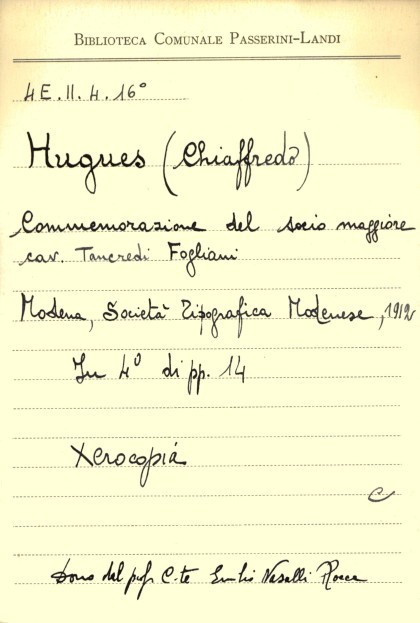 BIBLIOTECA COMUNALE PASSERINI-LANDI
4E.II.4.16°
Hugues (Chiaffredo)
Commemorazione del socio maggiore
cav. Tancredi Fogliani
Modena, Società Tipografica Modenese, 1912
In 4° di pp. 14
Xerocopia
C
Dono del prof. C.te Emilio Nasalli Rocca